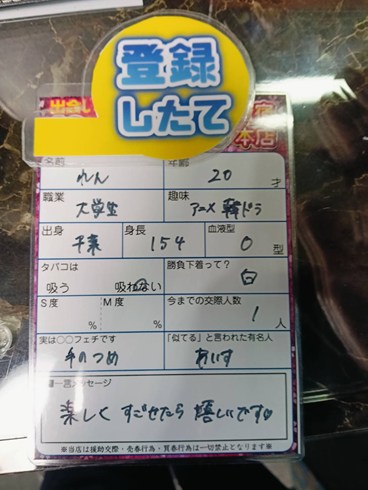 登録
したて
出会い
宿
本店
名前
れん
年齢
20才
職業
大学生
趣味
アニメ 韓ドラ
出身
千葉
身長
154
血液型
O型
タバコは
吸う 吸わない
勝負下着って?
白
S度
%
M度
%
今までの交際人数
1人
実は○○フェチです
手のつめ
「似てる」と言われた有名人
あいす
一言メッセージ
楽しく すごせたら 嬉しいです♡
※当店は援助交際・売春行為・買春行為は一切禁止となります※